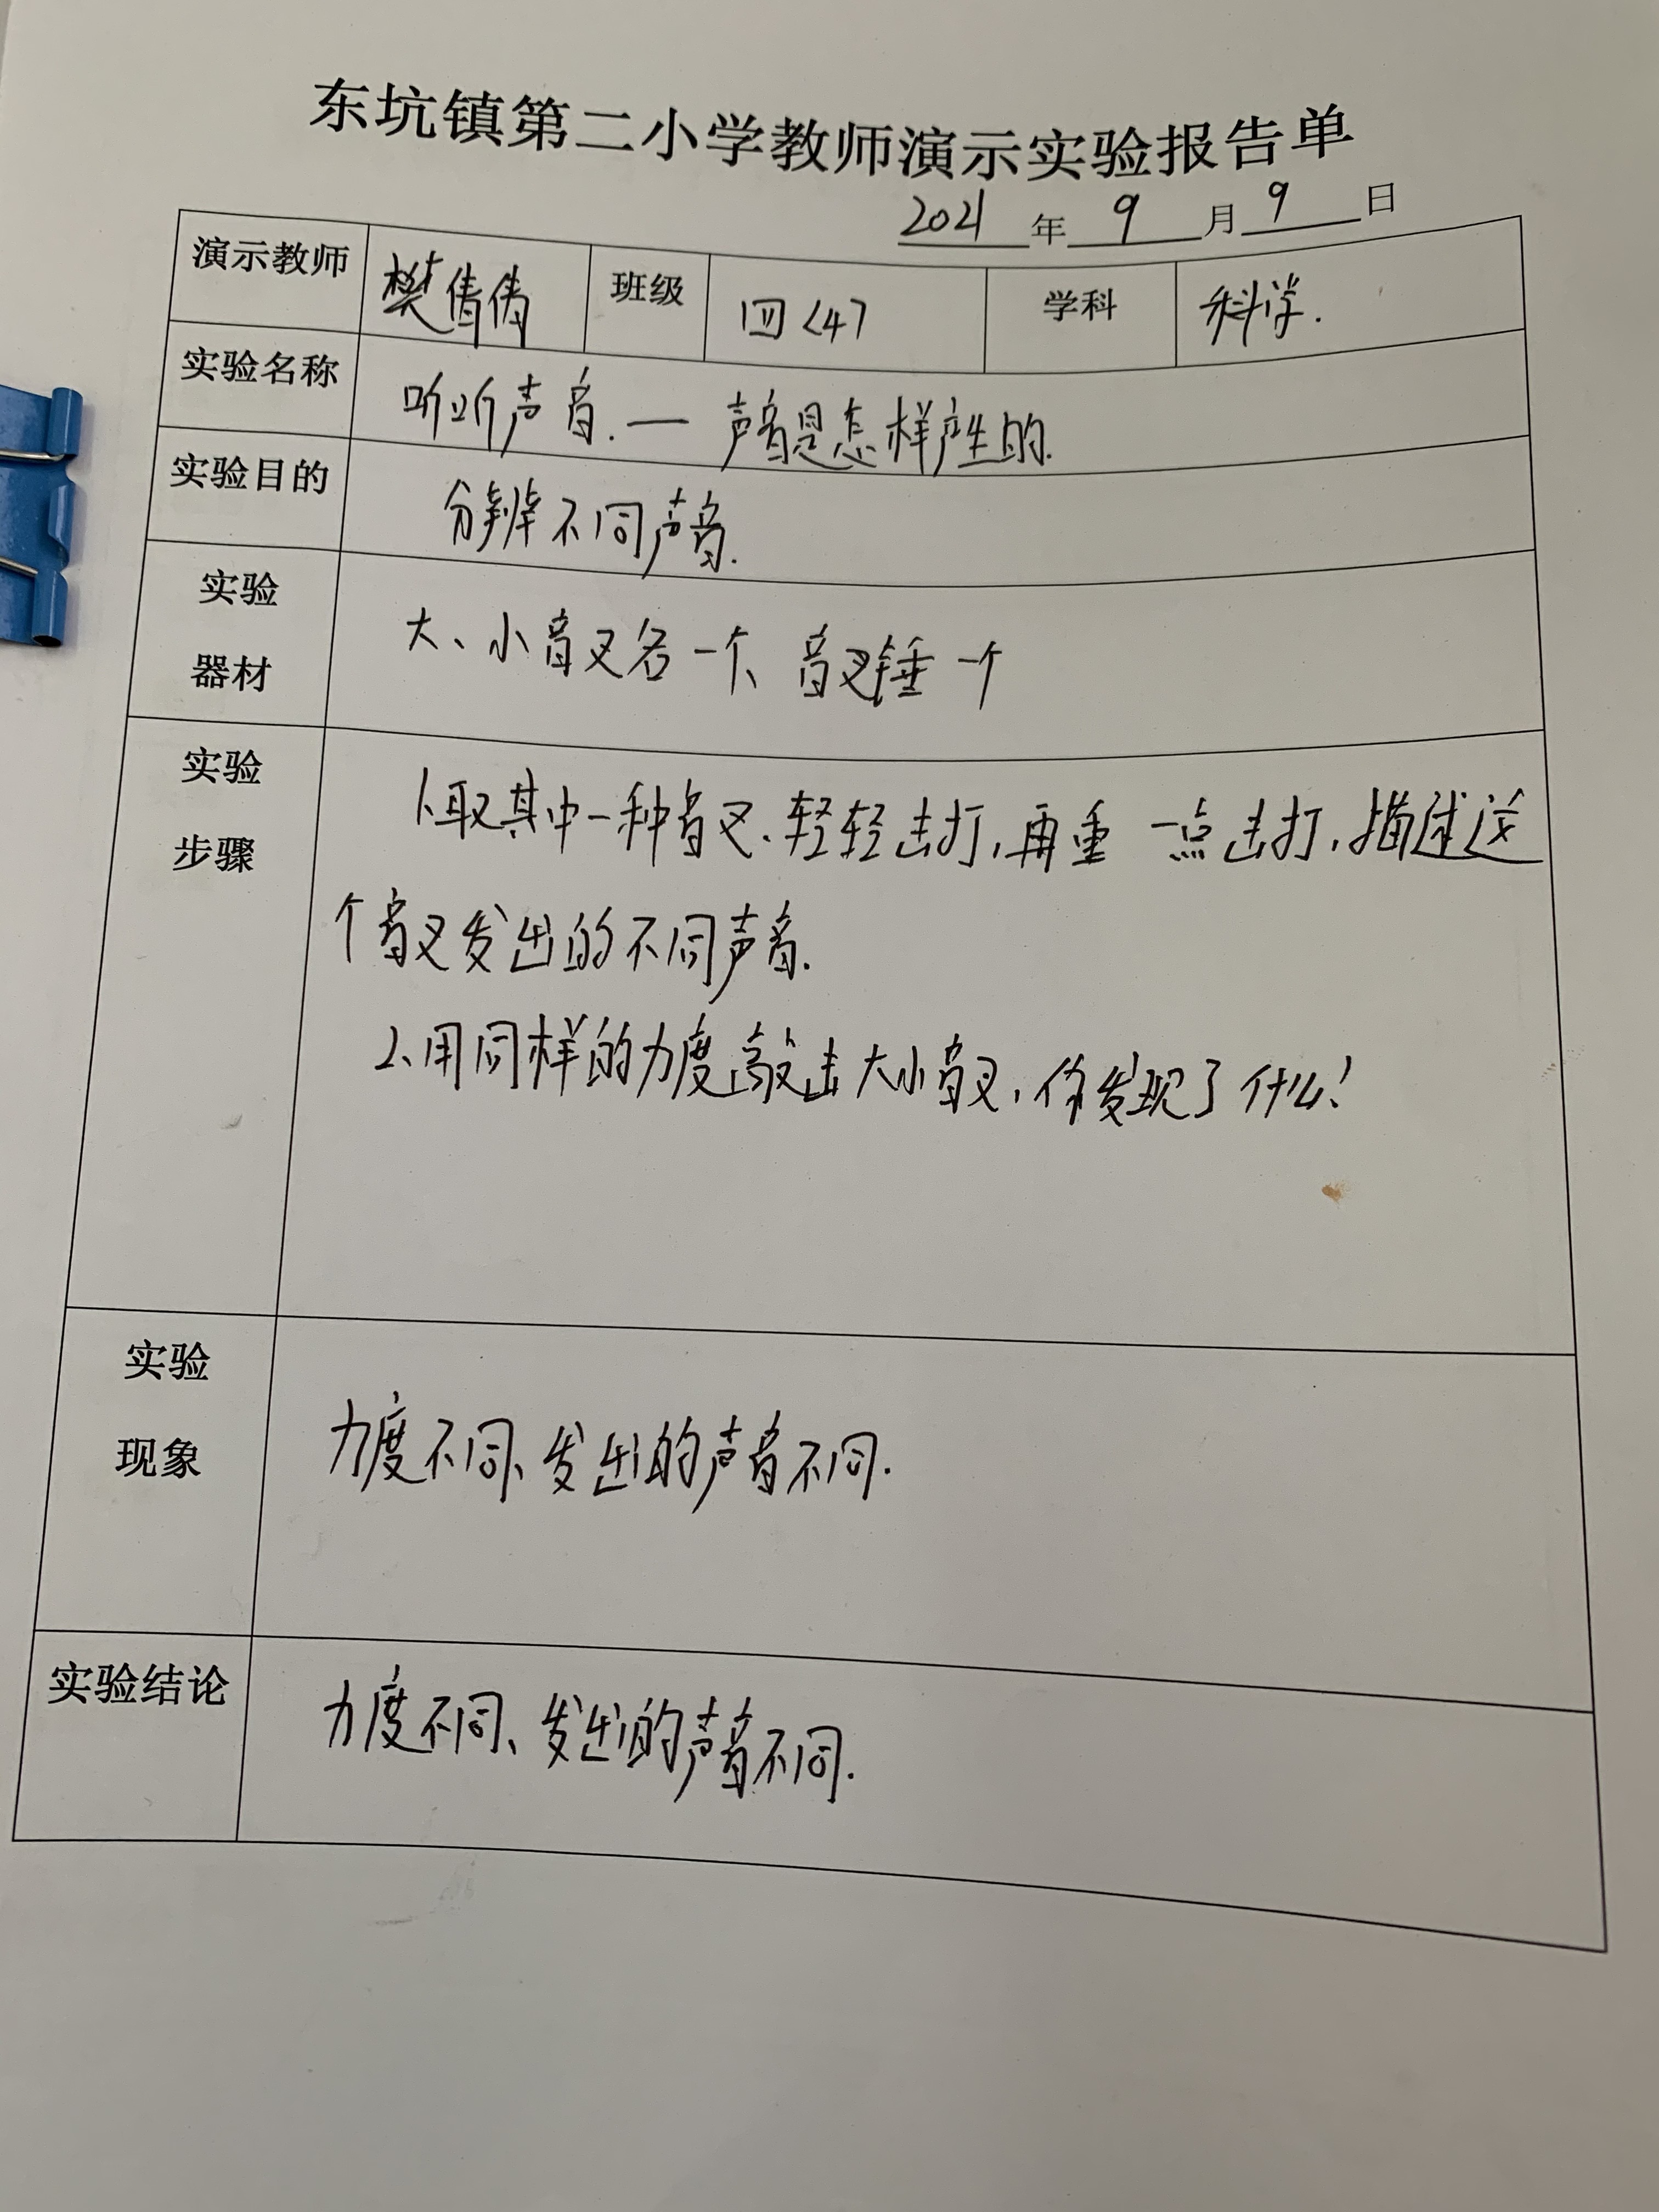 东坑镇第二小学教师演示实验报告单
2021年9月9日
演示教师 樊倩倩 班级 四<4> 学科 科学.
实验名称 听听声音.—声音是怎样产生的.
实验目的 分辨不同声音.
实验
器材
大、小音叉各一个、音叉锤一个
实验
步骤
1、取其中一种音叉、轻轻击打,再重一点击打,描述这
个音叉发出的不同声音.
2、用同样的力度敲击大小音叉,你发现了什么!
实验
现象
力度不同、发出的声音不同.
实验结论 力度不同、发出的声音不同.